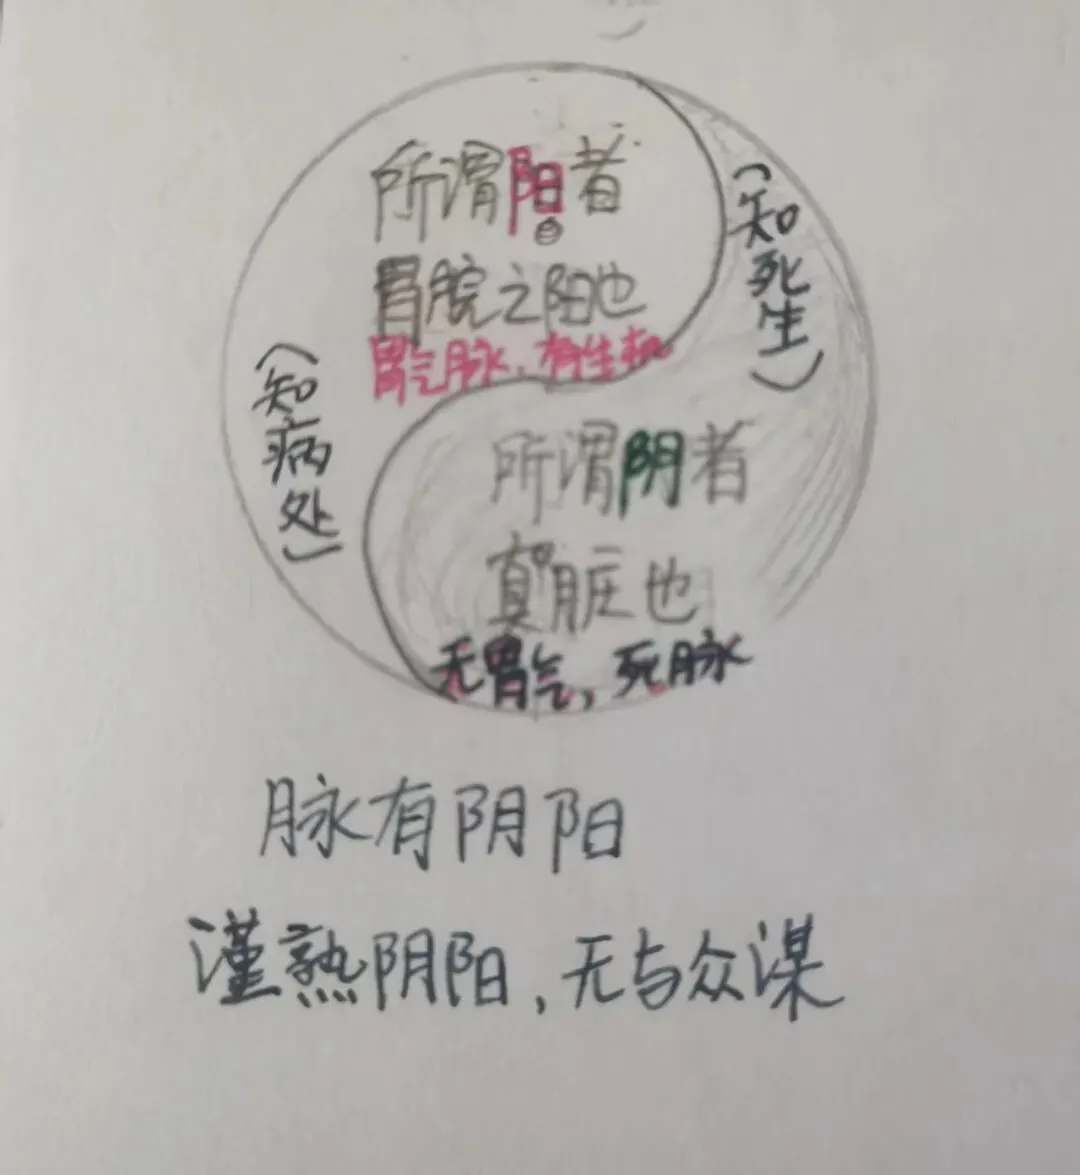 所谓阳者
胃脘之阳也
胃气脉，有生机
（知死生）
（知病处）
所谓阴者
真脏也
无胃气，死脉
脉有阴阳
谨熟阴阳，无与众谋